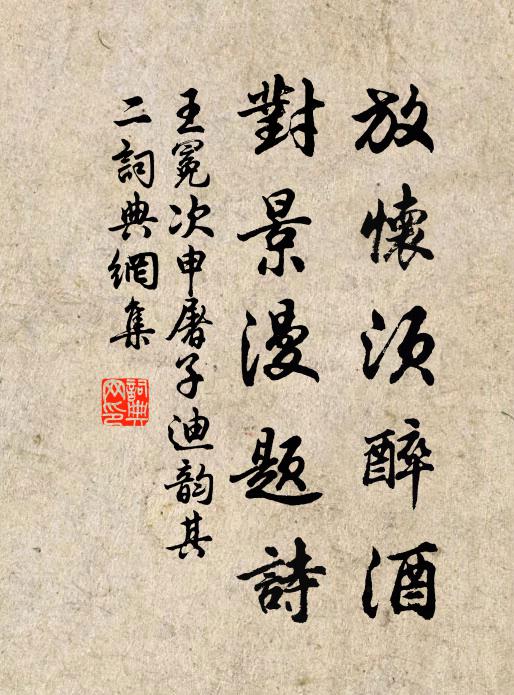 放懷須醉酒
對景漫題詩
王冕次申屠子迪韵其
二詞典網集
詞典
网印